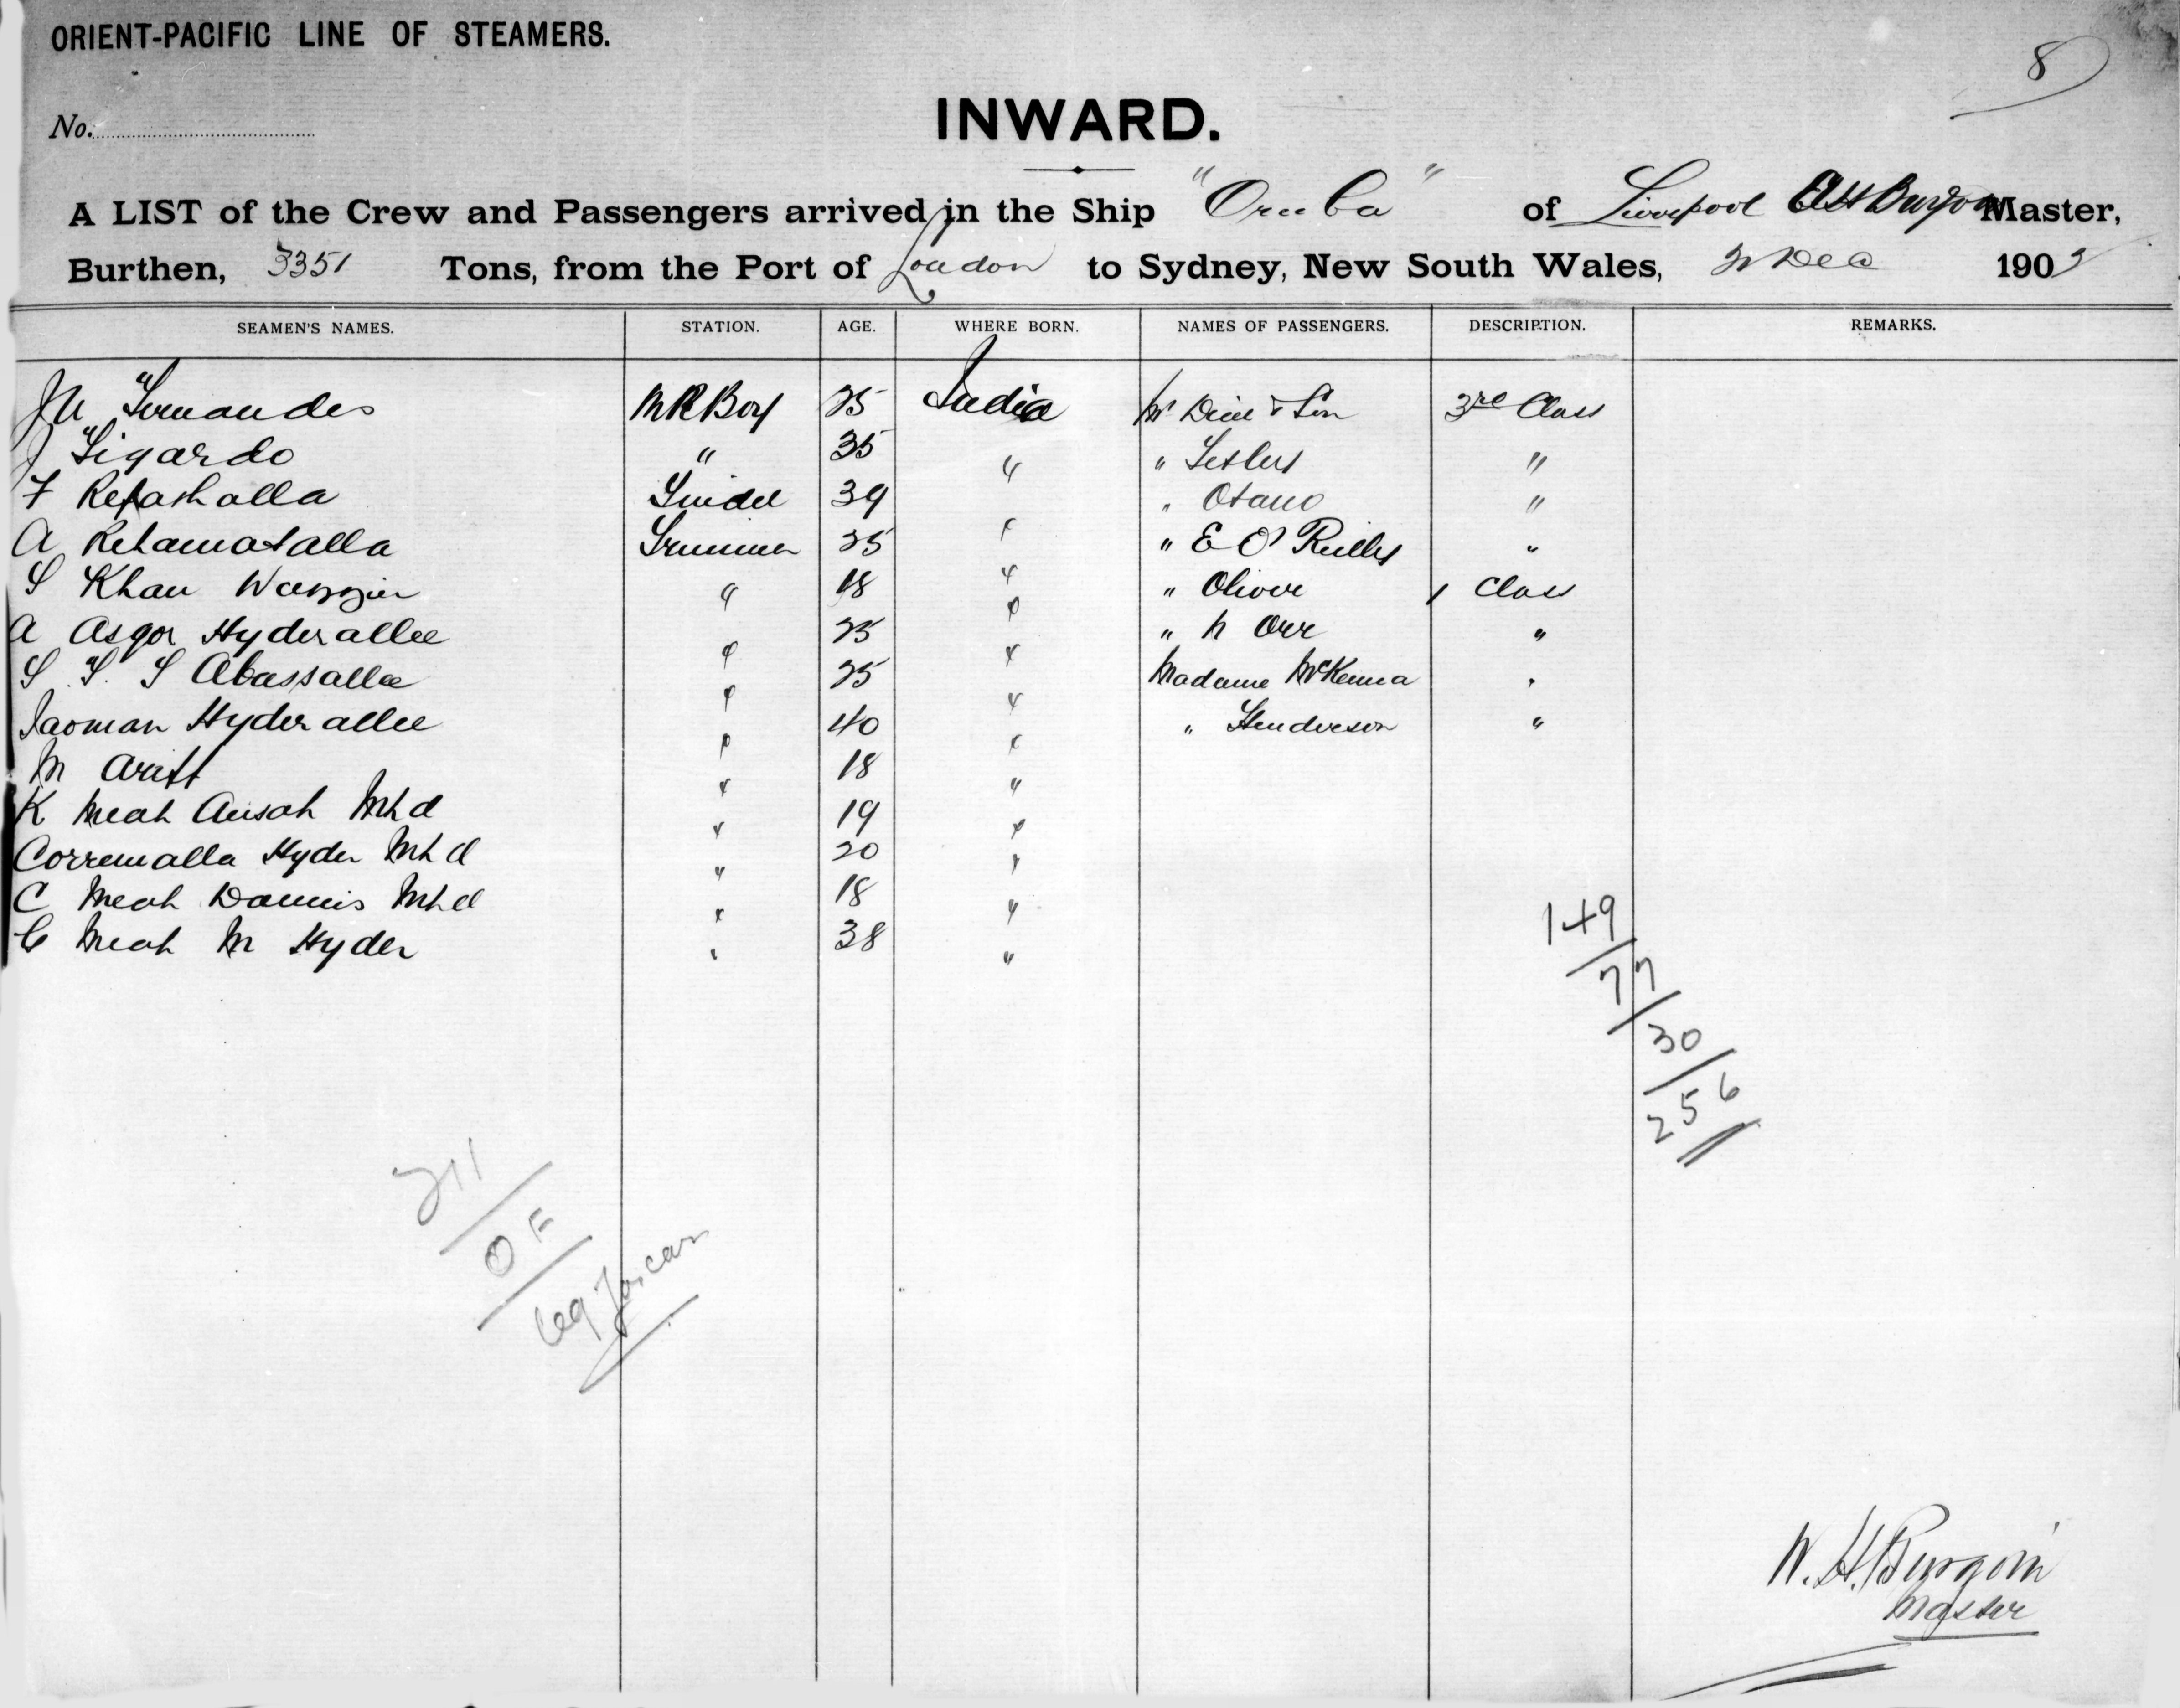 ORIENT-PACIFIC LINE OF STEAMERS.
8
No.
INWARD.
A LIST of the Crew and Passengers arrived in the Ship "Oruba" of Liverpool Master,
Burthen, 3351 Tons, from the Port of London to Sydney, New South Wales, Dec 190
SEAMEN'S NAMES. STATION. AGE. WHERE BORN. NAMES OF PASSENGERS. DESCRIPTION. REMARKS.
Fernandes Boy 25 India Mr & Son 3rd Class
J Figardo " 35 " " "
F 39 " " "
A Rehamatalla Trimmer 25 " " E O'Reilly "
S Khan " 18 " " Oliver 1 Class
A Asgor Hyderallee " 25 " " Orr "
S. S. S Abassallee " 25 " Madame McKenna "
Hyderallee " 40 " " Henderson "
M Ariff " 18 "
K Meah Ausoh Mhd " 19 "
Corremalla Hyder Mhd " 20 "
C Meah Mhd " 18 "
Meah M Hyder " 38 "
149
77
30
256
211
W. H. Burgoin
Master